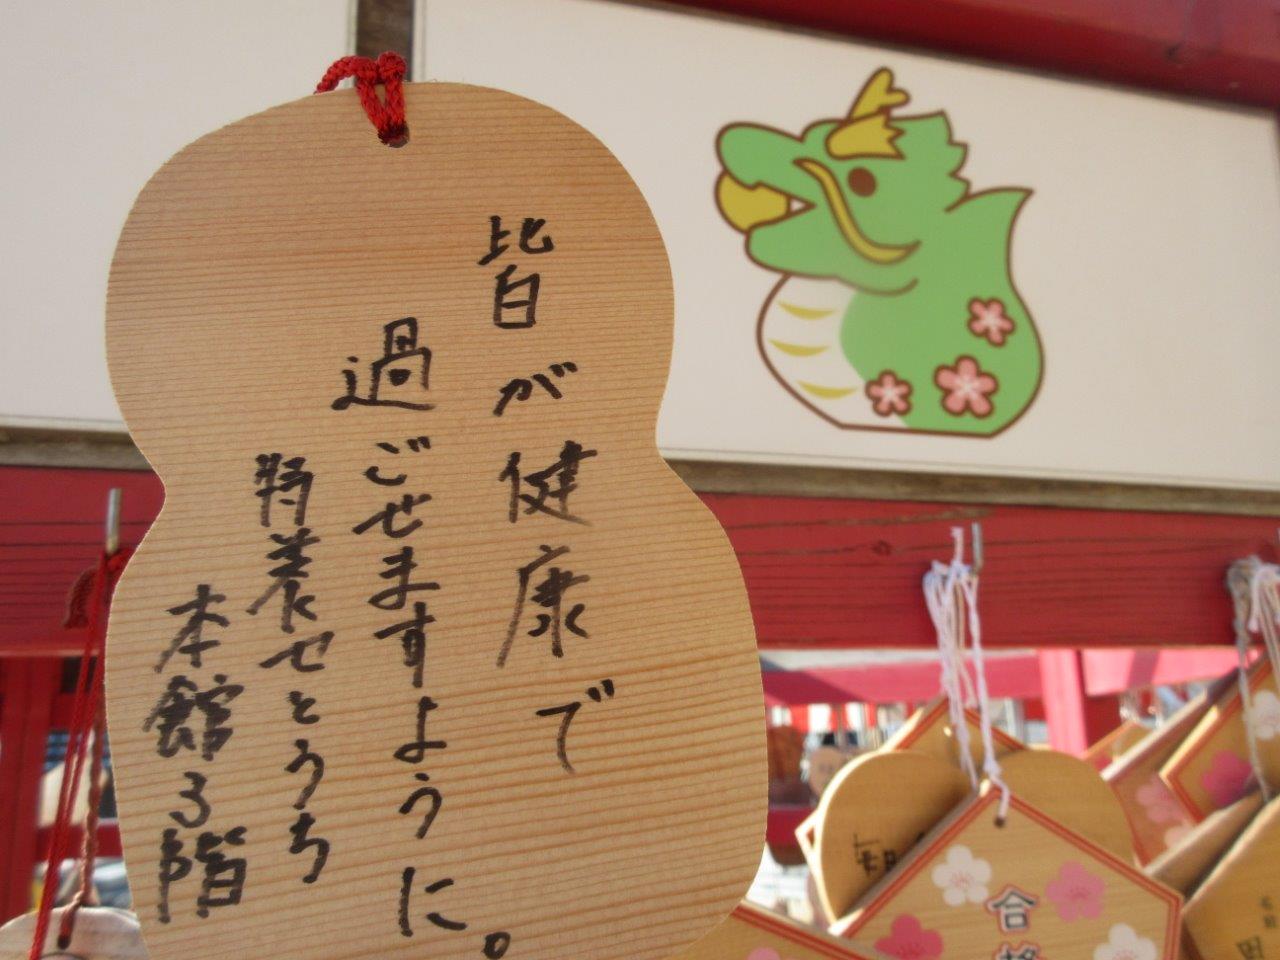 皆が健康で
過ごせますように。
特養せとうち
本館3階
合格